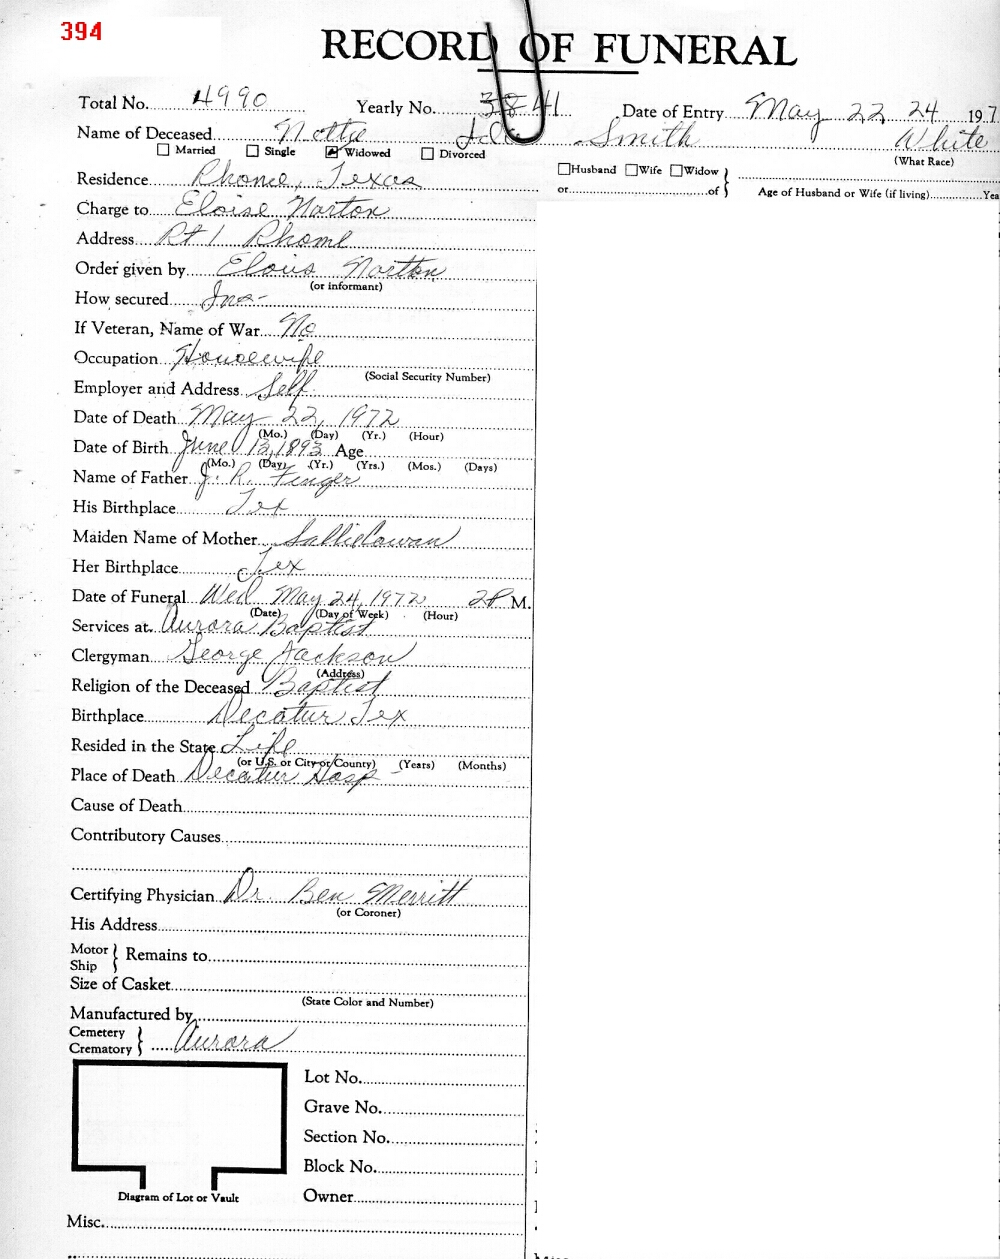 394
RECORD OF FUNERAL
Total No. 4990 Yearly No. 3841 Date of Entry May 22, 24 197
Name of Deceased Smith White
Married Single Widowed Divorced (What Race)
Husband Wife Widow
Residence Rhome, Texas or of Age of Husband or Wife (if living) Yea
Charge to Eloise Norton
Address Rt 1 Rhome
Order given by Elois Norton
(or informant)
How secured Ins-
If Veteran, Name of War No
Occupation Housewife
(Social Security Number)
Employer and Address Self
Date of Death May 22, 1972
(Mo.) (Day) (Yr.) (Hour)
Date of Birth June 13, 1893 Age
(Mo.) (Day) (Yr.) (Yrs.) (Mos.) (Days)
Name of Father J. R. Finger
His Birthplace Tex
Maiden Name of Mother Sallie Cowan
Her Birthplace Tex
Date of Funeral Wed May 24, 1972 2P M.
(Date) (Day of Week) (Hour)
Services at Aurora Baptist
Clergyman George Jackson
(Address)
Religion of the Deceased Baptist
Birthplace Decatur Tex
Resided in the State Life
(or U.S. or City or County) (Years) (Months)
Place of Death Decatur Hosp
Cause of Death
Contributory Causes
Certifying Physician Dr. Ben Merritt
(or Coroner)
His Address
Motor
Ship
Remains to
Size of Casket
(State Color and Number)
Manufactured by
Cemetery
Crematory
Aurora
Lot No.
Grave No.
Section No.
Block No.
Diagram of Lot or Vault
Owner
Misc.